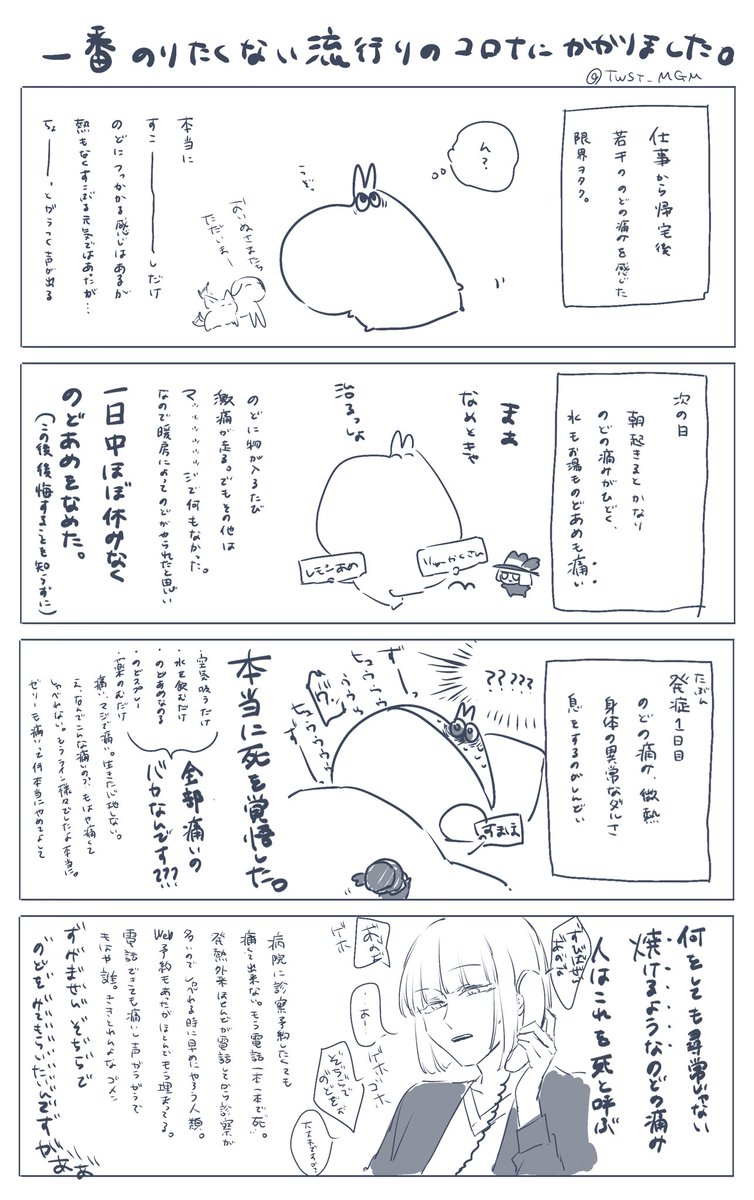 一番のりたくない流行りのコロナにかかりました。
@TWST_MGM
仕事から帰宅後
若干ののどの痛みを感じた
限界ヲタク。
ん?
おいぬさまたち
ただいまー
本当に
すこ――――しだけ
のどにつっかかる感じはあるが
熱もなくすこぶる元気ではあったが…
ちょ――――っとがらつく声が出る
次の日
朝起きるとかなり
のどの痛みがひどく、
水もお湯ものどあめも痛い
まぁ
なめときゃ
治るっしょ
りゅーかくさん
レモンあめ
のどに物が入るたび
激痛が走る。でもその他は
マッッッッッッジで何もなかった。
なので暖房によってのどがやられたと思い
一日中ほぼ休みなく
のどあめをなめた。
(この後後悔することを知らずに)
たぶん
発症1日目
のどの痛み、微熱
身体の異常なダルさ
息をするのがしんどい
?????
ずーっ
ヒュウウウ
すまほ
本当に死を覚悟した。
・空気吸うだけ
・水を飲むだけ
・のどあめなめる
・のどスプレー
・薬のむだけ
全部痛いの
バカなんです???
痛い、マジで痛い。生きた心地しない。
え、なんでこんな痛いの?もはや痛くて
しゃべれない。もうライン様々でしたよ本当に。
ゼリーも痛いって何本当にやめてよして
何をしても尋常じゃない
焼けるようなのどの痛み
人はこれを死と呼ぶ
すびばせん
あのですね
あのぢ
ゲホ
…あー
ゲホゴホ
ぞぢらで
のどをな
大丈夫ですか?
病院に診察予約したくても
痛くて出来ない。もう電話一本一本で死。
発熱外来ほとんどが電話してから診察が
多いのでしゃべれる時に早めにやろう人類。
Web予約もあたがほとんどもう埋まってる。
電話できても痛いし声がらがらで
もはや誰。ききとれんよなゴメン
ずびばせんぞぢらで
のどをみてもらいたいんですがぁぁ